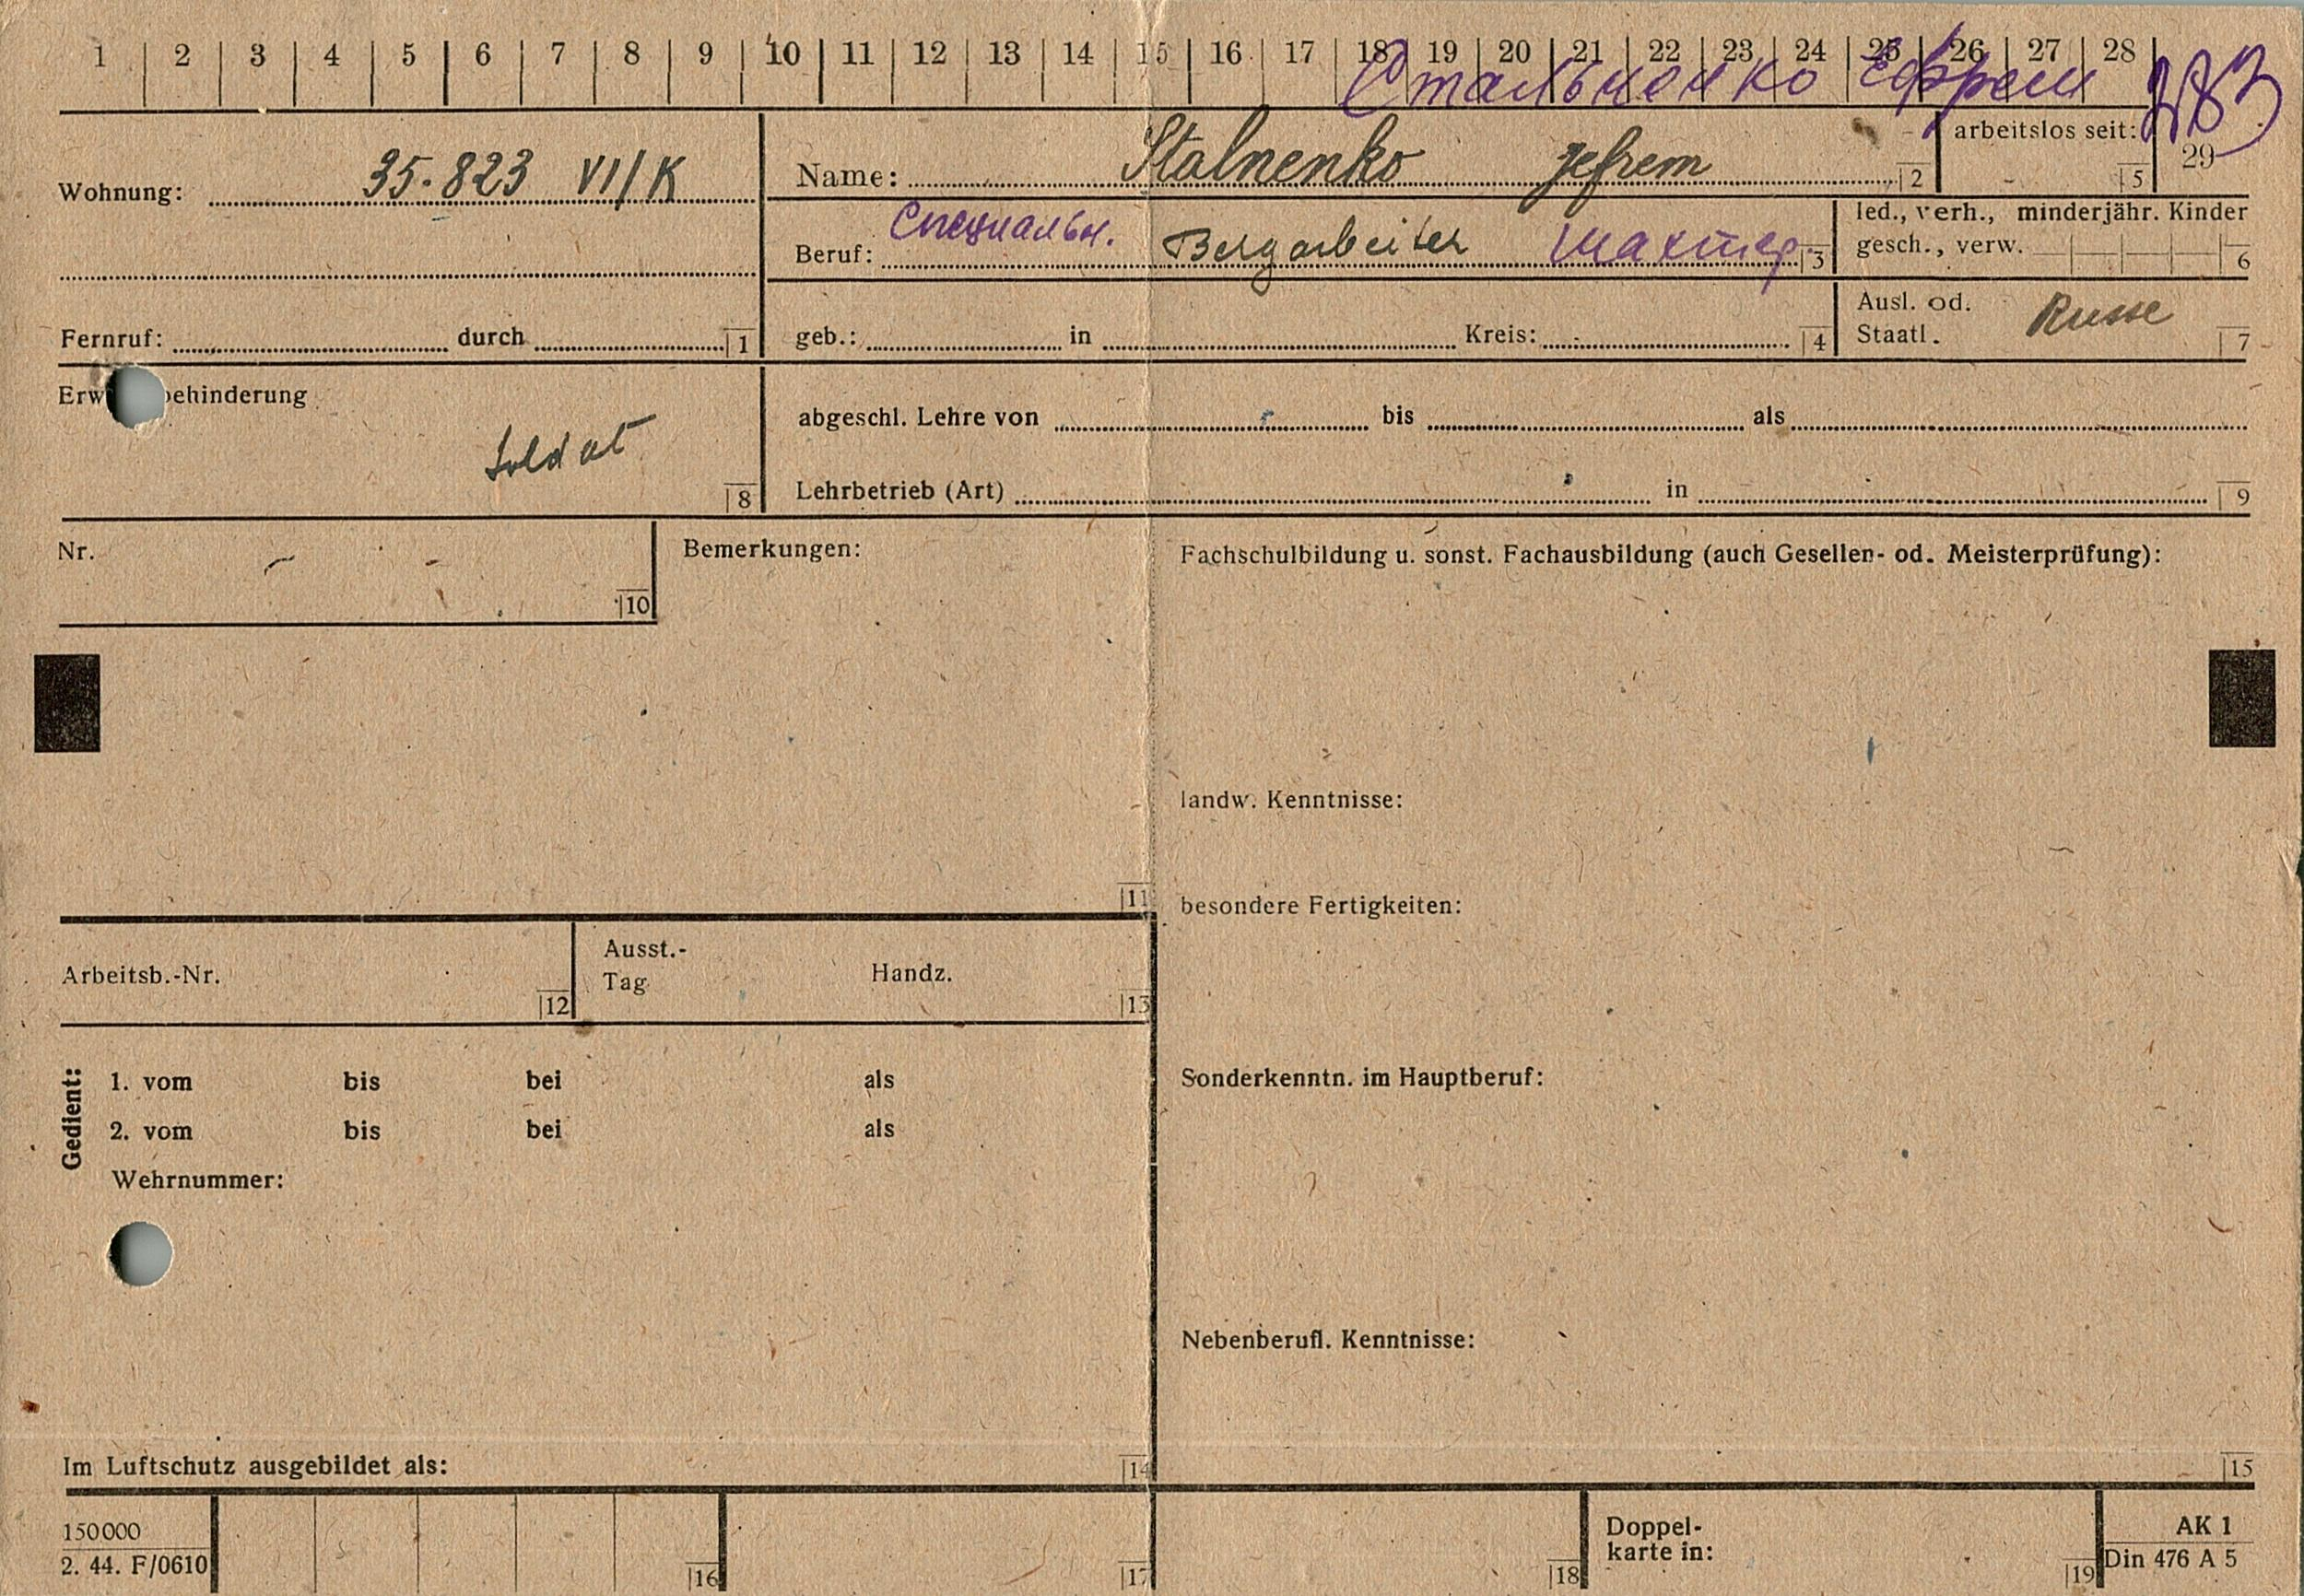 1 2 3 4 5 6 7 8 9 10 11 12 13 14 15 16 17 18 19 20 21 22 23 24 25 26 27 28
Стальненко Ефрем 283
Wohnung: 35.823 VI/K
Name: Stalnenko Jefrem 2
arbeitslos seit: 5
29
Beruf: Специальн. Bergarbeiter шахтер 3
led., verh., minderjähr. Kinder
gesch., verw. 6
Fernruf: durch 1
geb.: in Kreis: 4
Ausl. od.
Staatl. Russe 7
Erw behinderung
Soldat 8
abgeschl. Lehre von bis als
Lehrbetrieb (Art) in 9
Nr. 10
Bemerkungen: 11
Fachschulbildung u. sonst. Fachausbildung (auch Gesellen- od. Meisterprüfung):
landw. Kenntnisse:
besondere Fertigkeiten:
Arbeitsb.-Nr. 12
Ausst.-
Tag Handz. 13
Gedient:
1. vom bis bei als
2. vom bis bei als
Wehrnummer:
Sonderkenntn. im Hauptberuf:
Nebenberufl. Kenntnisse:
Im Luftschutz ausgebildet als: 14
15
150000
2. 44. F/0610
16 17 18
Doppel-
karte in: 19
AK 1
Din 476 A 5